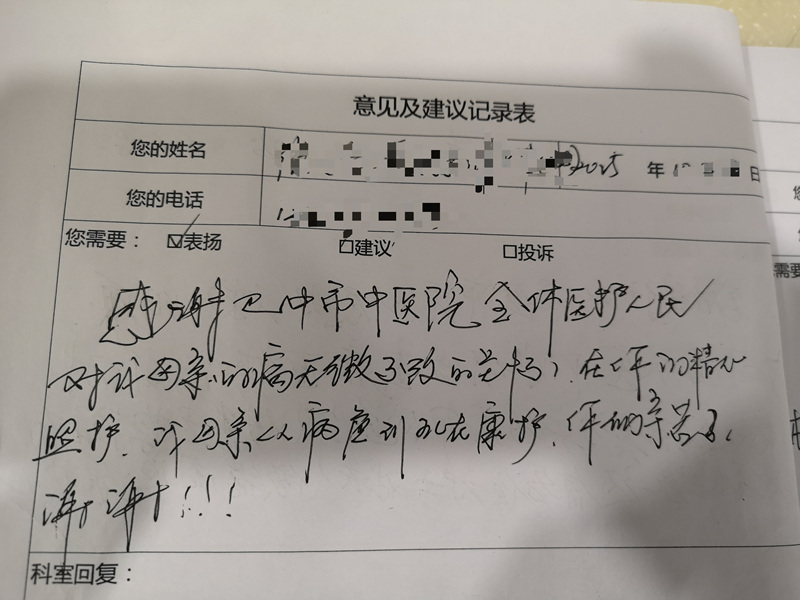 意见及建议记录表
您的姓名 2025 年 日
您的电话
您需要： ☑表扬 □建议 □投诉
感谢巴中市中医院全体医护人民
对我母亲的病无微不致的关怀，在你的精心
照护，我母亲从病虚到现在康护，你们辛苦了，
谢谢!!!
科室回复：